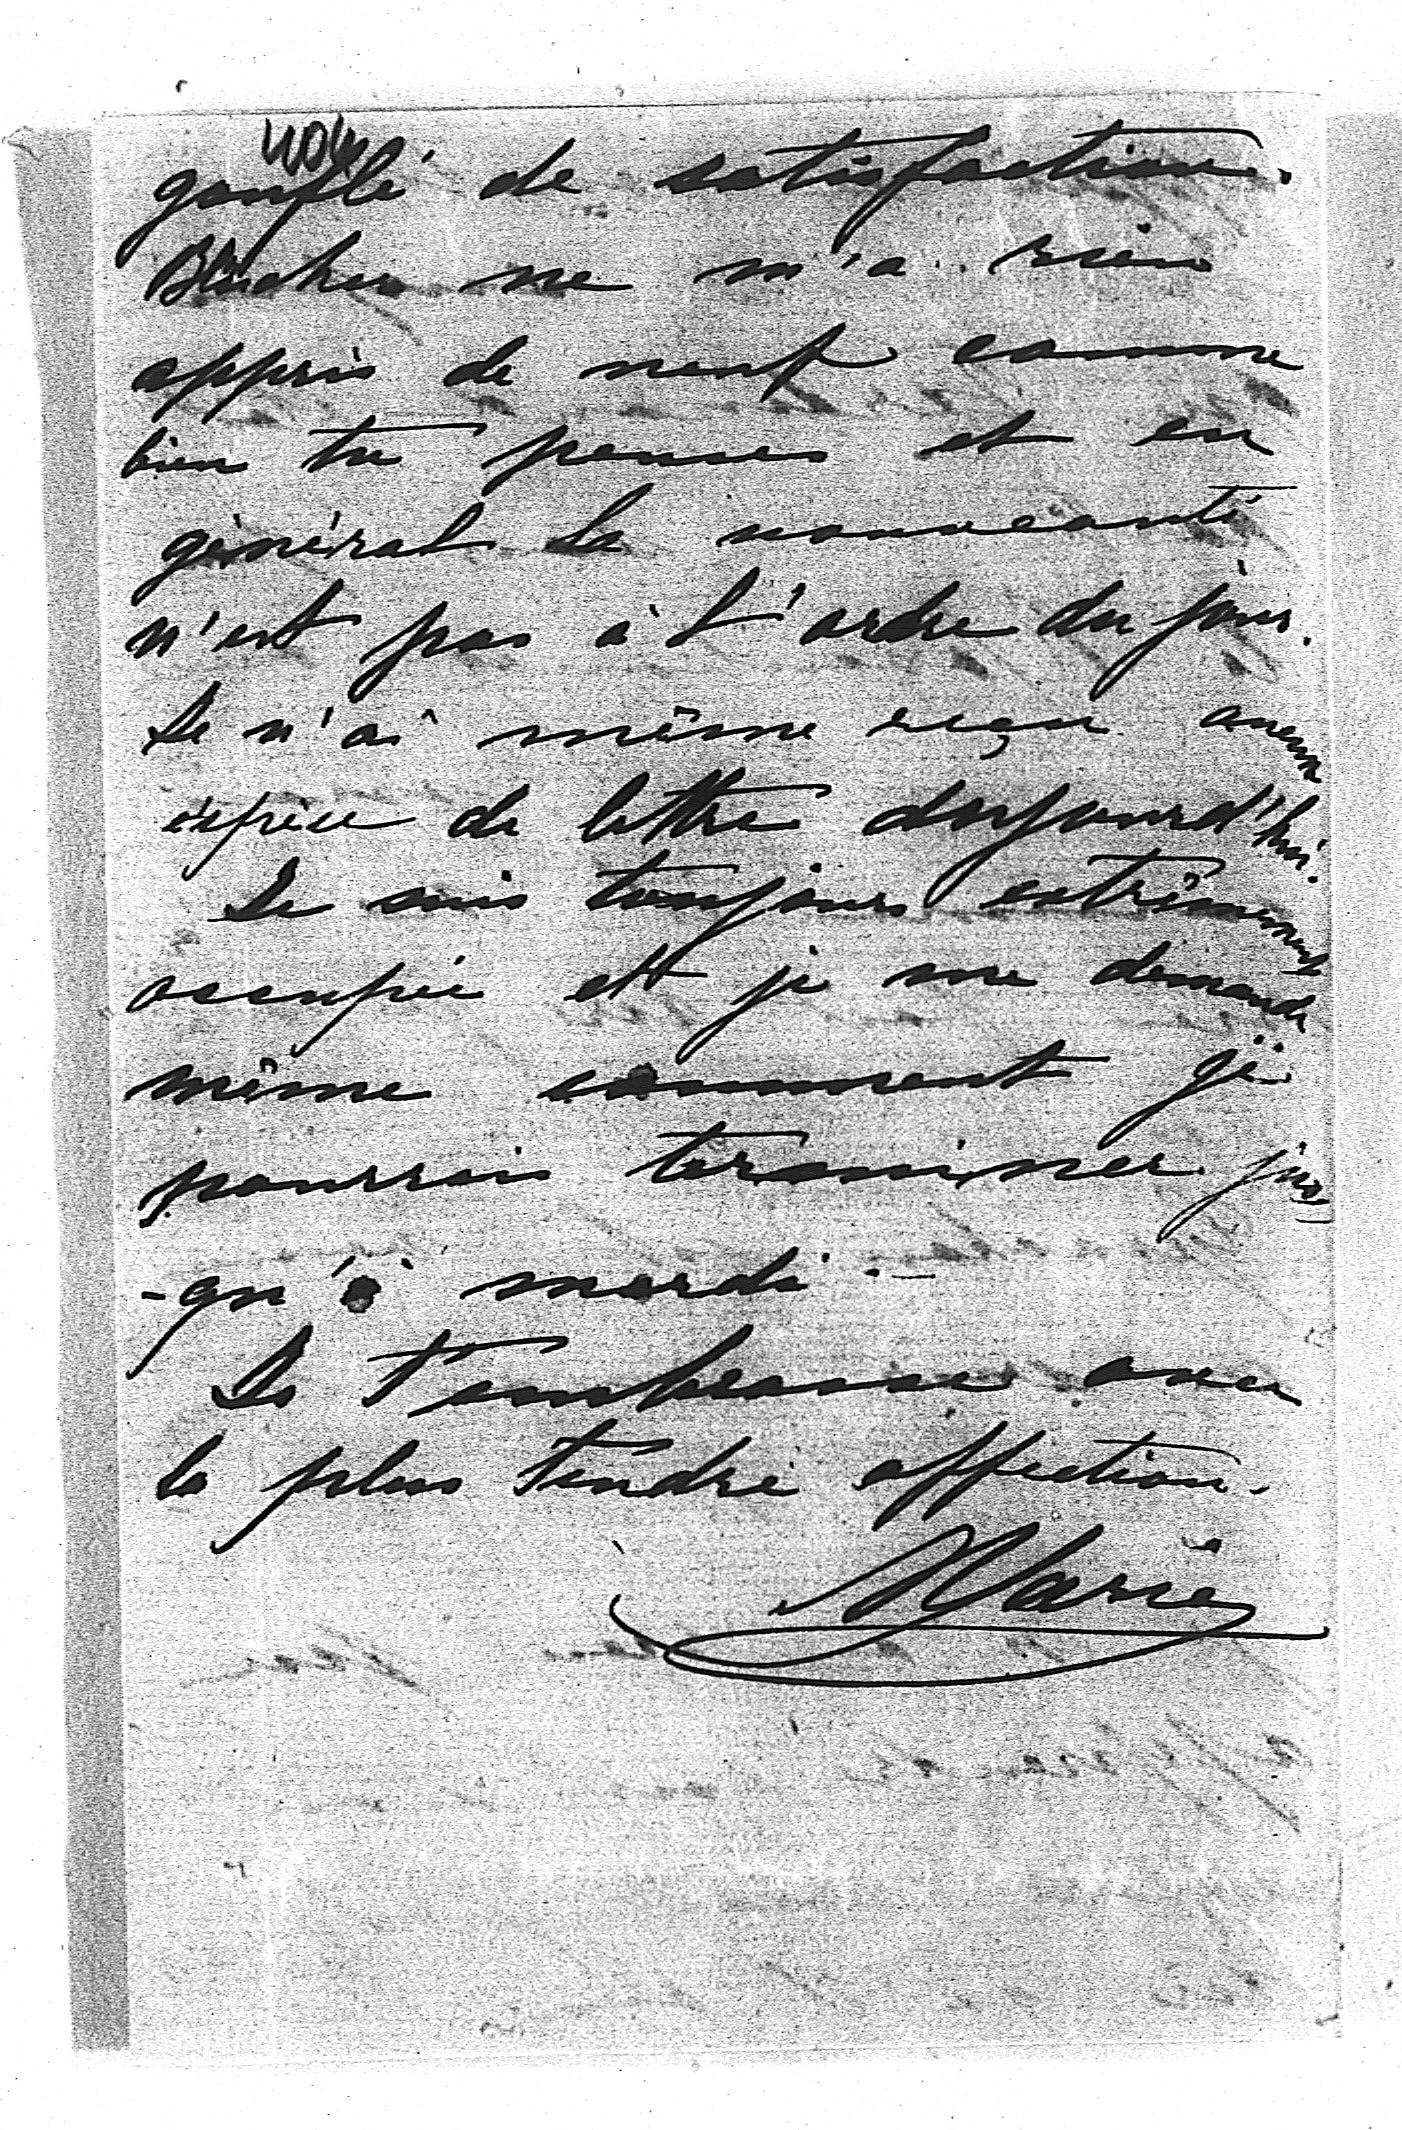 gonflé de satisfaction.
Blücher ne m'a rien
appris de neuf comme
bien tu penses et en
général la nouveauté
n'est pas à l'ordre du jour.
Je n'ai même reçu aucune
espèce de lettre aujourd'hui.
Je suis toujours extrêmement
occupée et je me demande
même comment je
pourrais terminer jus
-qu'à mardi. —
Je t'embrasse avec
la plus tendre affection.
Marie